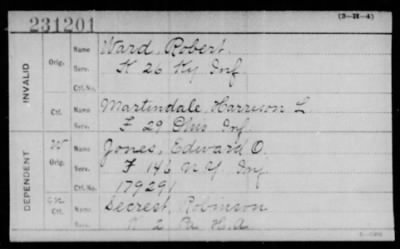 231201
(3-H-4)
INVALID
Orig. Name Ward, Robert.
Serv. K 26 Ky Inf
Ctf. No.
Ctf. Name Martindale, Harrison L
Serv. F 29 Ohio Inf
DEPENDENT
W Orig. Name Jones, Edward O.
Serv. F 146 N Y Inf
Ctf. No. 179291
Ctf. Name Secrest, Robinson
Serv. 2 H.A.